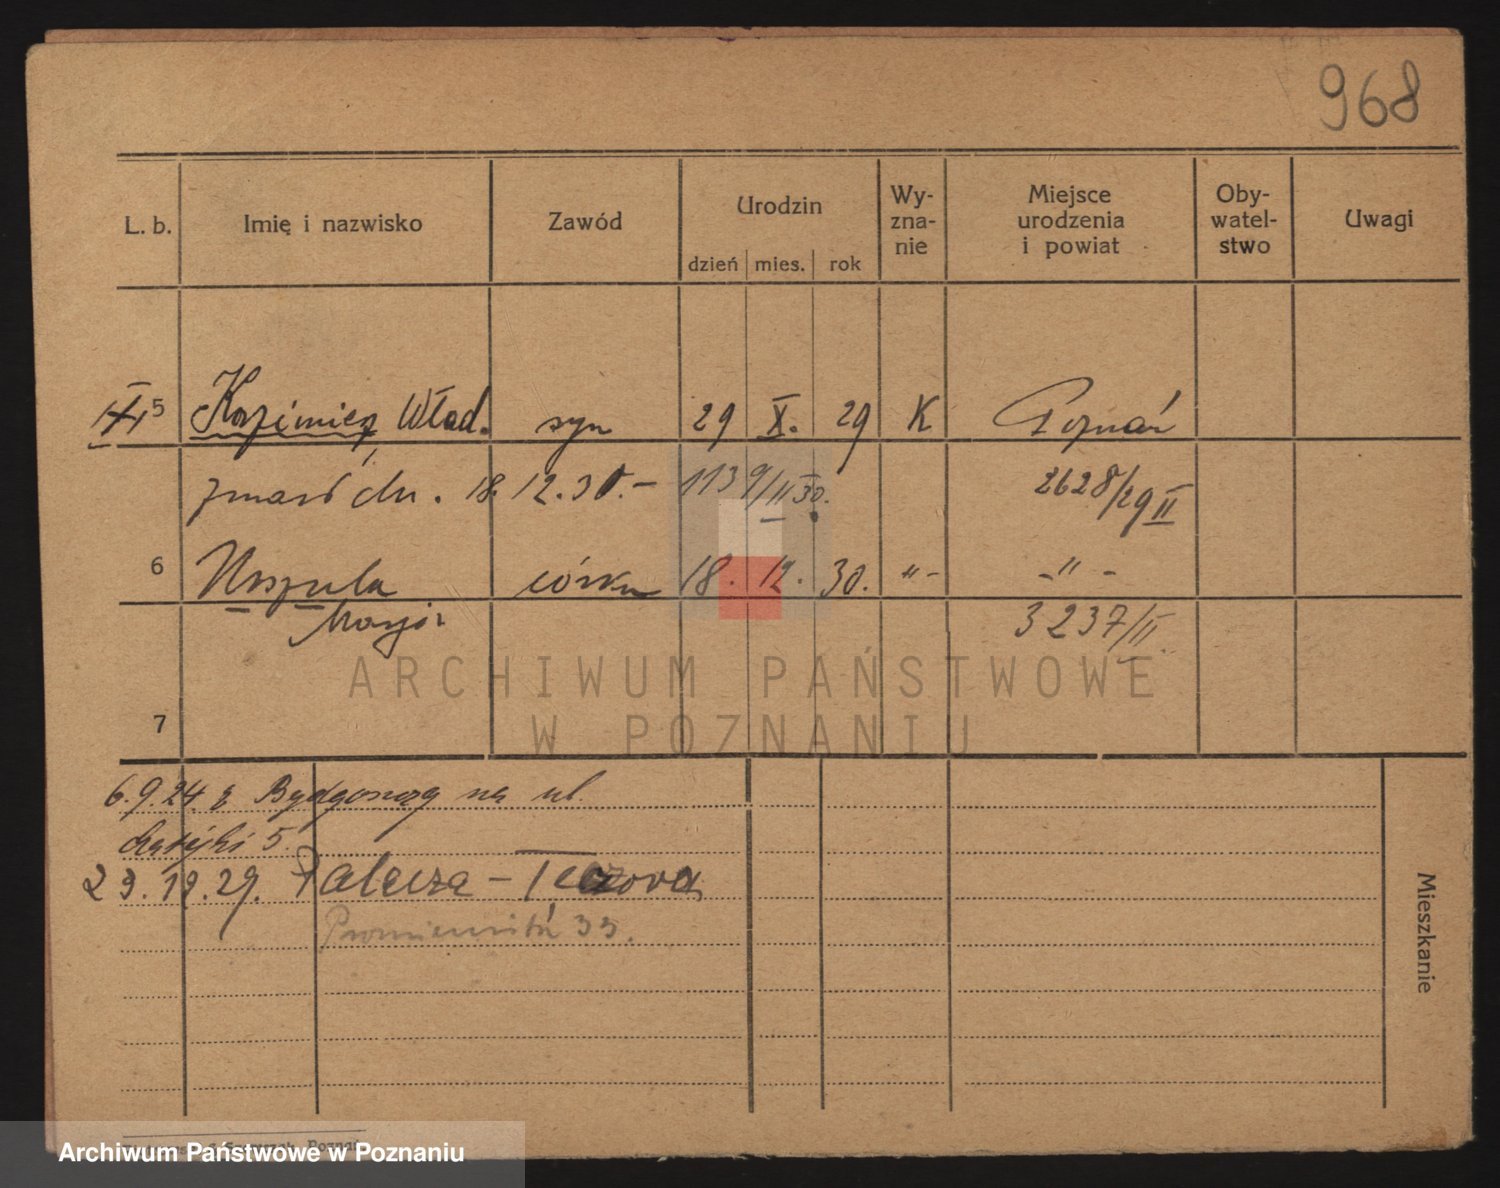 968
L. b. Imię i nazwisko Zawód Urodzin Wy-zna-nie Miejsce urodzenia i powiat Oby-watel-stwo Uwagi
dzień mies. rok
5 Kazimierz Wład. syn 29 X. 29 K Poznań
zmarł dn. 18. 12. 30. – 1139/II 30. 2628/29 II
6 Urszula córka 18. 12. 30. „ - - „ -
Marja 3237/II
7
6.9.24 z Bydgoszczy na ul.
5.
29. 29. Palacza –
33.
Mieszkanie
Poznań
ARCHIWUM PAŃSTWOWE
W POZNANIU
Archiwum Państwowe w Poznaniu